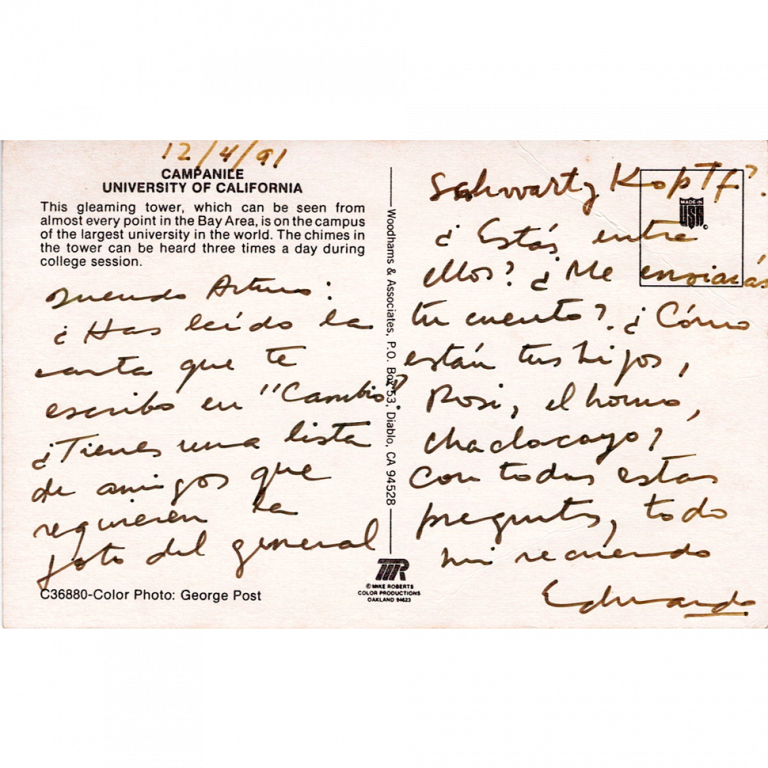 12/4/91
CAMPANILE
UNIVERSITY OF CALIFORNIA
This gleaming tower, which can be seen from
almost every point in the Bay Area, is on the campus
of the largest university in the world. The chimes in
the tower can be heard three times a day during
college session.
Querido Arturo:
¿Has leído la
carta que te
escribo en "Cambio"?
¿Tienes una lista
de amigos que
requieren la
foto del general
C36880-Color Photo: George Post
Woodhams & Associates, P.O. Box 53, Diablo, CA 94528
MR
©MIKE ROBERTS
COLOR PRODUCTIONS
OAKLAND 94623
MADE IN
USA
Schwartz Kopff?
¿Estás entre
ellos? ¿Me enviarás
tu cuento? ¿Cómo
están tus hijos,
Rosi, el horno,
chaclacayo?
Con todas estas
preguntas, todo
mi recuerdo
Eduardo